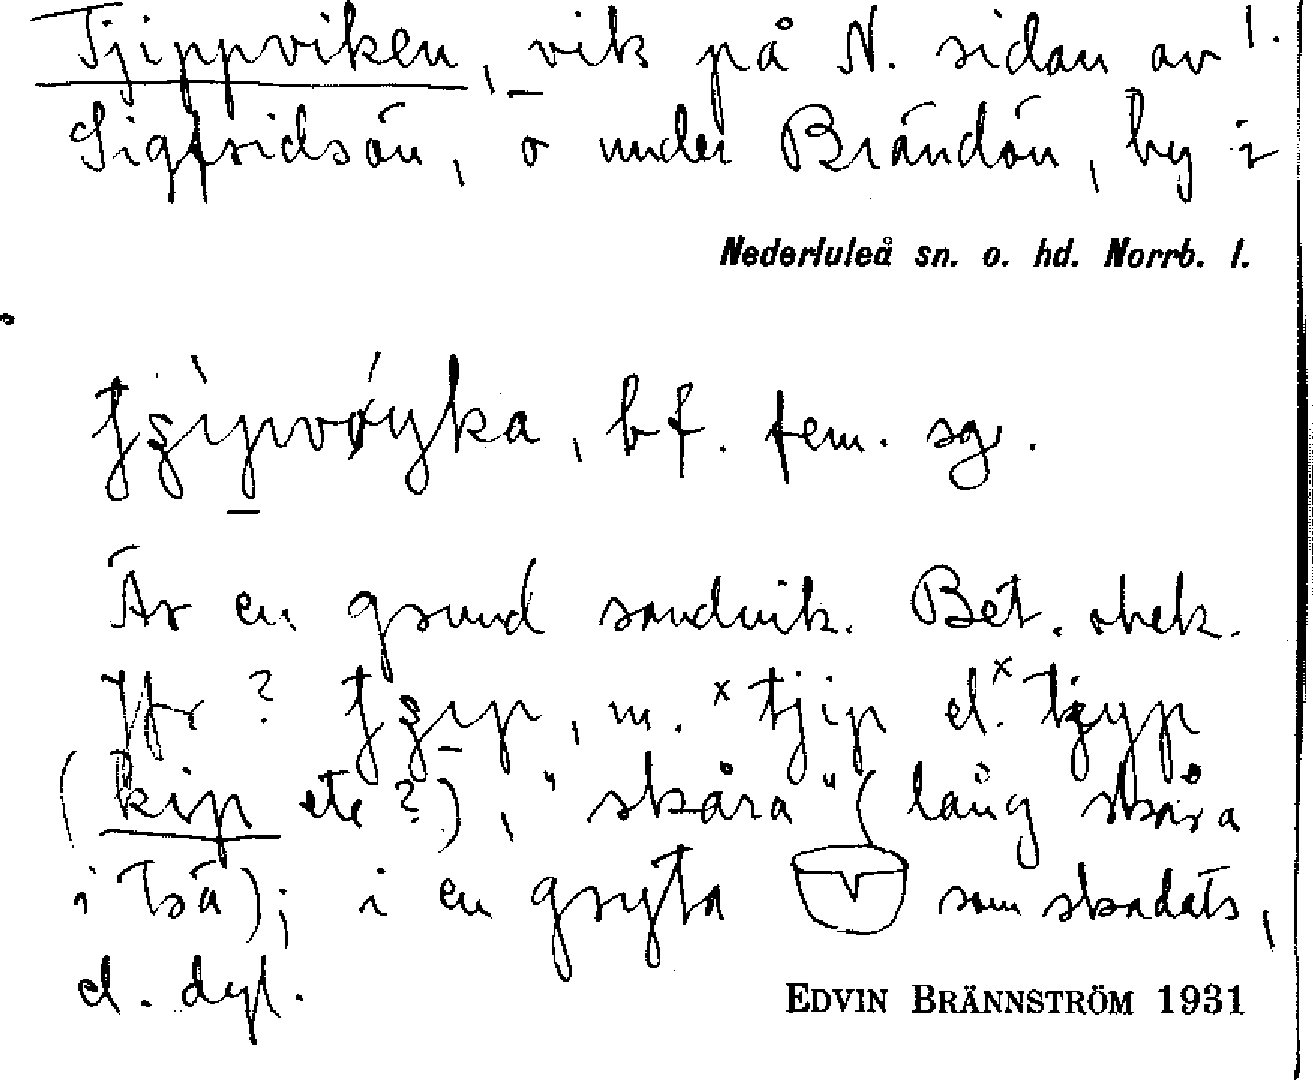 Tjippviken, vik på N. sidan av 1.
Sigfridsön, ö under Brändön, by i
Nederluleå sn. o. hd. Norrb. l.
bf. fem. sg.
Är en grund sandvik. Bet. obek.
Jfr ? m. x tjip el. x tjyp
(kip etc?), "skåra" (lång skåra
i trä); i en gryta som skadats,
el. dyl.
EDVIN BRÄNNSTRÖM 1931